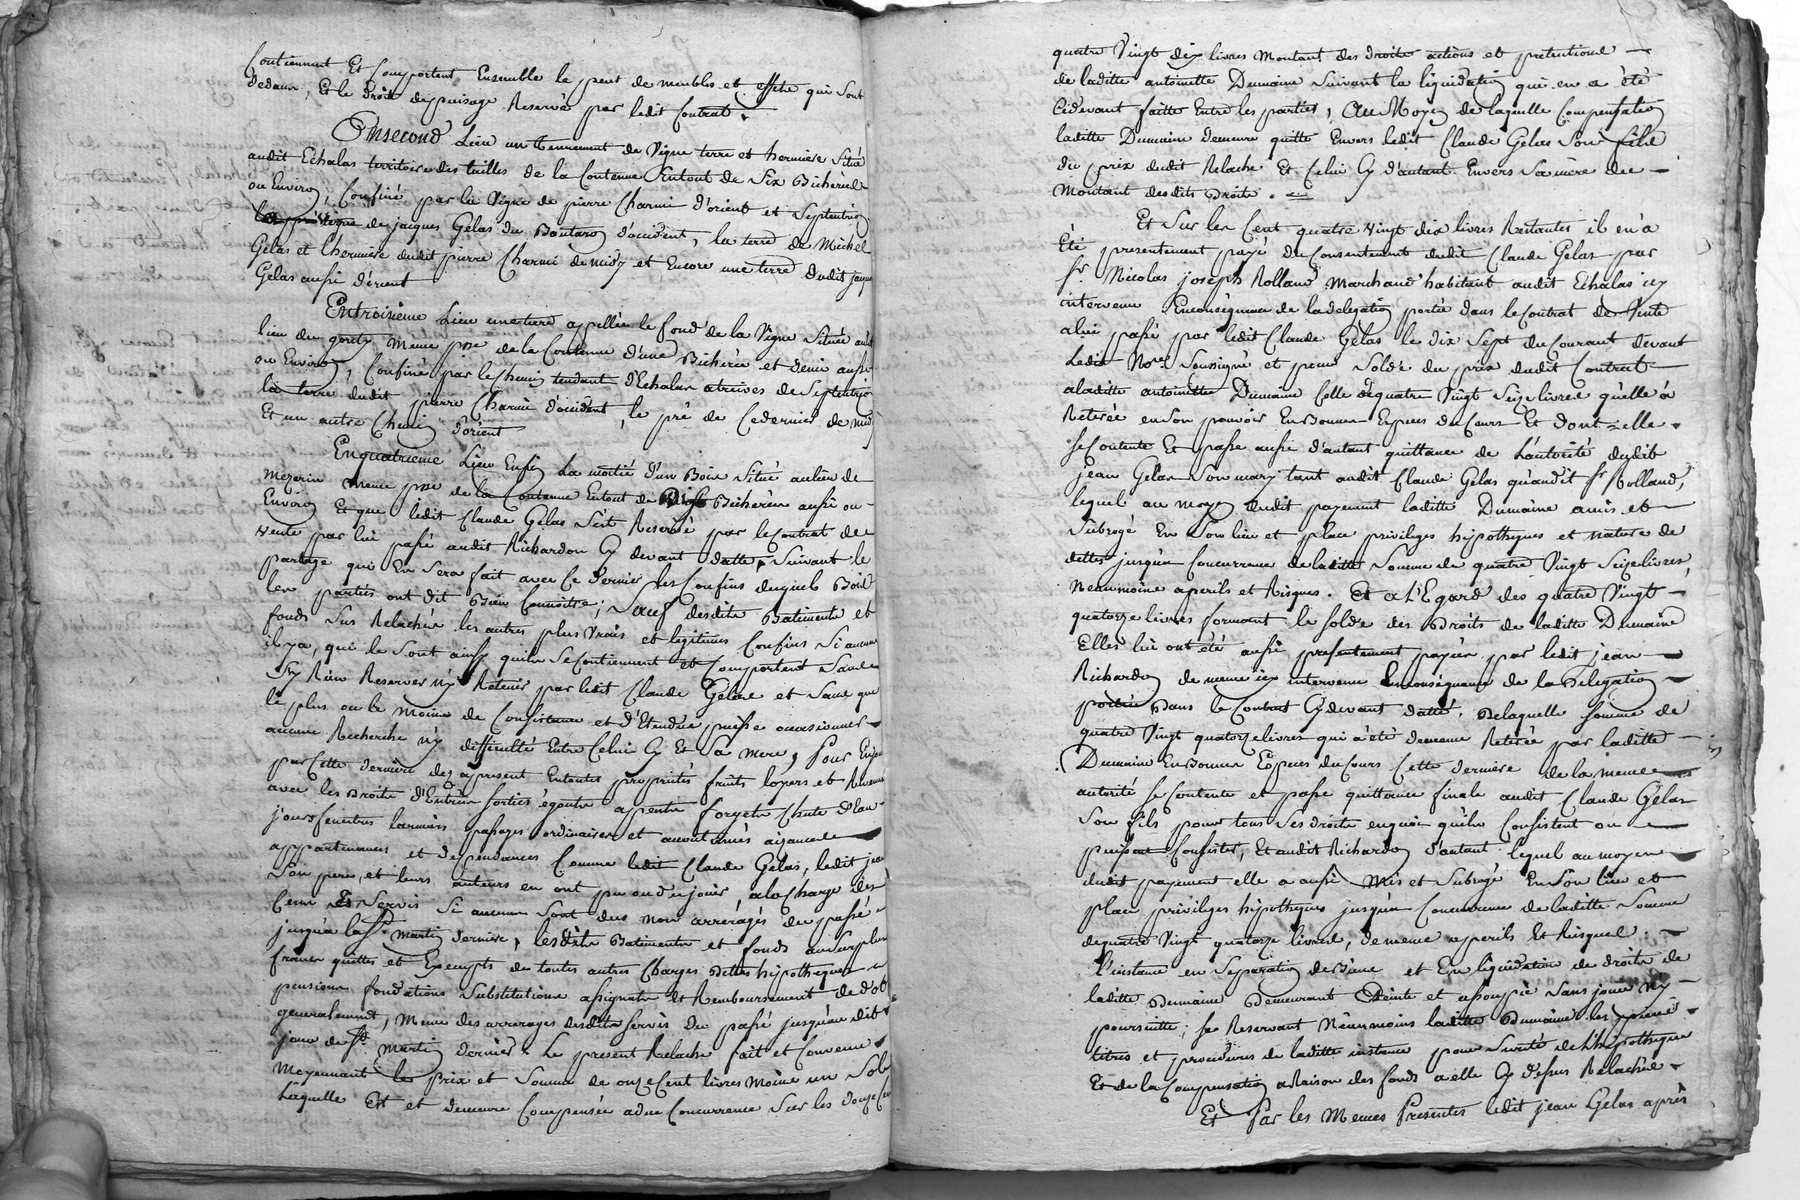 Contiennent Et Comportent Ensemble le peut de meubles et effets qui sont
dedans, Et le droit de puisage Reservés par ledit Contrat.
Ensecond Lieu un tennement de Vigne terre et hermiere Situé
audit Echalas territoire des tailles de la Contenue Entout de Six Bicherées
ou Environ, Confiné par la Vigne de pierre Charmi d'orient et Septentrion
Vigne de jacques Gelas du Boutaron d'occident, la terre de Michel
Gelas et l'hermiere dudit pierre Charmi de midy et Encore une terre dudit jacques
Gelas aussi d'orient
Entroisieme Lieu une terre appellée le fond de la Vigne Située audit
lieu du meme psse de la Contenue d'une Bicherée et demie aussi
ou Environ, Confinée par le Chemin tendant d'Echalas a treives de Septentrion
la terre dudit pierre Charmi d'occident, le pré de Cedernier de midy
Et un autre Chemin d'orient
Enquatrieme Lieu Enfin La moitié d'un Bois Situé au lieu de
mezerin meme psse de la Contenue Entout de Bicherées aussi ou
Environ Et que ledit Claude Gelas s'est Reservé par le Contrat de
vente par lui passé audit Richardon Cy devant datté, Suivant le
partage qui En Sera fait avec Ce dernier les Confins duquels Bois
les partiés ont dit Bien Connoitre; Sauf desdits Batiments et
fonds Sus Relachés les autres plus Vrais et legitimes Confins Si aucuns
il y a, qui le Sont ainsy quils Se Contiennent et Comportent Sans
En Rien Reserver ny Retenir par ledit Claude Gelas et Sans que
le plus ou le moins de Consistance et d'Etendüe puisse occasionner
aucune Recherche ny difficulté Entre Celui Cy Et Sa mere, Pour En jouir
par Cette derniere des apresent Entoutes proprietés fruits loyers et Revenus
avec les Droits d'Entrées sorties égouts apents forgets Chute d'Eau
jours fenêtres larmiers passages ordinaires et accoutumés aisances
appartenances et dependances Comme ledit Claude Gelas, ledit jean
Son pere, et leurs auteurs en ont pu ou dû jouir a la Charge des
Cens Et Servis Si aucuns Sont dus non arréragés du passé
jusqu'à la St. martin derniere, lesdits Batiments et fonds au Surplus
francs quittes et Exempts de toutes autres Charges Dettes hipotheques
pensions fondations Substitutions assignats et Remboursement de dot
generalement, meme des arrerages desdits Servis du passé jusqu'au dit
jour de St. martin dernier. Le present Relache fait et Convenu
moyennant les prix et Somme de onze Cent livres moins un Sol
Laquelle Est et demeure Compensée a due Concurrence Sur les douze Cent
quatre Vingt dix livres montant des droits actions et pretentions
de laditte antoinette Dumaine Suivant la liquidation qui en a été
Cidevant faitte Entre les parties, Au Moyen de laquelle Compensation
laditte Dumaine demeure quitte Envers ledit Claude Gelas Son fils
du prix dudit Relache Et Celui Cy d'autant Envers Sa mere du
montant desdits Droits.
Et Sur les Cent quatre vingt dix livres Restantes il en a
Eté presentement payé du Consentement dudit Claude Gelas par
sr. Nicolas joseph Rolland Marchand habitant audit Echalas icy
intervenu Enconséquence de la delegation portée dans le Contrat de Vente
a lui passé par ledit Claude Gelas le dix Sept du Courant devant
Ledit Nore. Soussigné et pour Solde du prix dudit Contrat
a laditte antoinette Dumaine Celle de quatre Vingt Seize livres qu'elle a
Retirée en son pouvoir En Bonnes Especes du Cours Et dont elle
se Contente Et passe aussi d'autant quittance de L'autorité dudit
jean Gelas Son mary tant audit Claude Gelas qu'audit sr. Rolland,
lequel au moyen dudit payement laditte Dumaine a mis et
Subrogé En Son lieu et place privileges hipotheques et nature de
dettes jusqu'à Concurrence de laditte Somme de quatre Vingt Seize livres
neanmoins a perils et Risques. Et a l'Egard des quatre Vingt
quatorze livres formant le solde des Droits de laditte Dumaine
Elles lui ont été aussi presentement payées par ledit jean
Richardon de meme icy intervenu Enconséquence de la Delegation
portée Dans le Contrat Cydevant datté. De laquelle somme de
quatre Vingt quatorze livres qui a été dememe Retirée par laditte
Dumaine En Bonnes Especes du Cours Cette derniere de la meme
autorité se Contente et passe quittance finale audit Claude Gelas
Son fils pour tous Ses droits en quoi qu'ils Consistent ou
puissent Consister, Et audit Richardon d'autant lequel au moyen
dudit payement elle a aussi Mis et Subrogé En Son lieu et
place privileges hipotheques jusqu'à Concurrence de laditte Somme
de quatre Vingt quatorze livres, de meme a perils Et Risques.
l'instance en Separation de Biens et En liquidation de droits de
laditte Dumaine Demeurant Eteinte et assoupie Sans jour ny
poursuitte; se Reservant Néanmoins laditte Dumaine les
titres et procedures de laditte instance pour Sureté de L'hipotheque
Et de la Compensation a Raison des fonds a elle Cy dessus Relachés.
Et Par les Memes Presentes ledit jean Gelas après